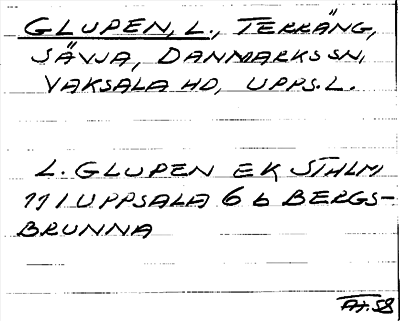 GLUPEN, L., TERRÄNG,
SÄVJA, DANMARKS SN,
VAKSALA HD, UPPS. L.
L. GLUPEN EK STHLM
11 I UPPSALA 6 b BERGS-
BRUNNA